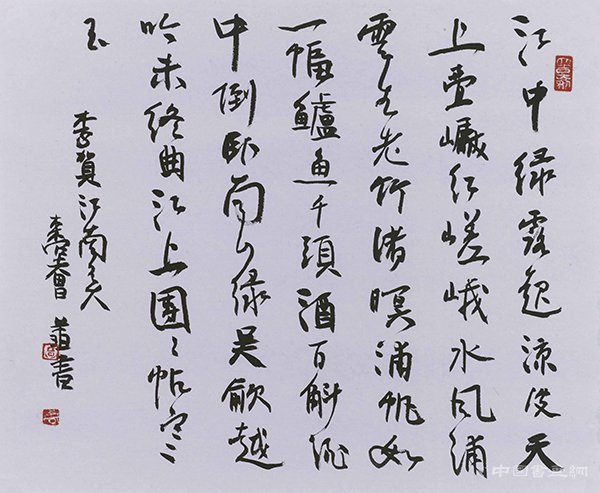 江中绿露起凉波天
上叠巘红嵯峨水风浦
雲生老竹渚暝浦帆如
一幅鱸魚千頭酒百斛酒
中倒卧南山绿吴歈越
吟未终曲江上團々帖寒
玉
李賀江南弄
书
中国書画網